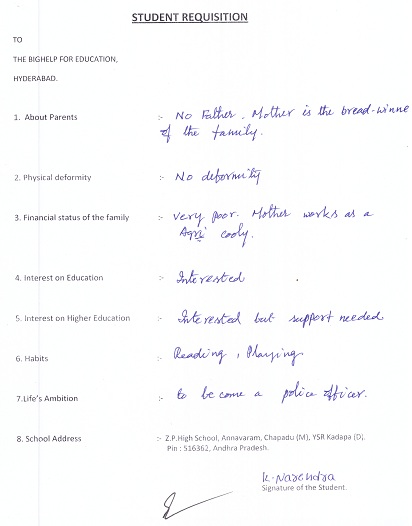 STUDENT REQUISITION
TO
THE BIGHELP FOR EDUCATION,
HYDERABAD.
1. About Parents :- No Father. Mother is the bread-winne
of the family.
2. Physical deformity :- No deformity
3. Financial status of the family :- very poor. Mother works as a
Agri cooly.
4. Interest on Education :- Interested
5. Interest on Higher Education :- Interested but support needed
6. Habits :- Reading, Playing.
7.Life's Ambition :- to become a police officer.
8. School Address :- Z.P.High School, Annavaram, Chapadu (M), YSR Kadapa (D).
Pin : 516362, Andhra Pradesh.
K. Narendra
Signature of the Student.